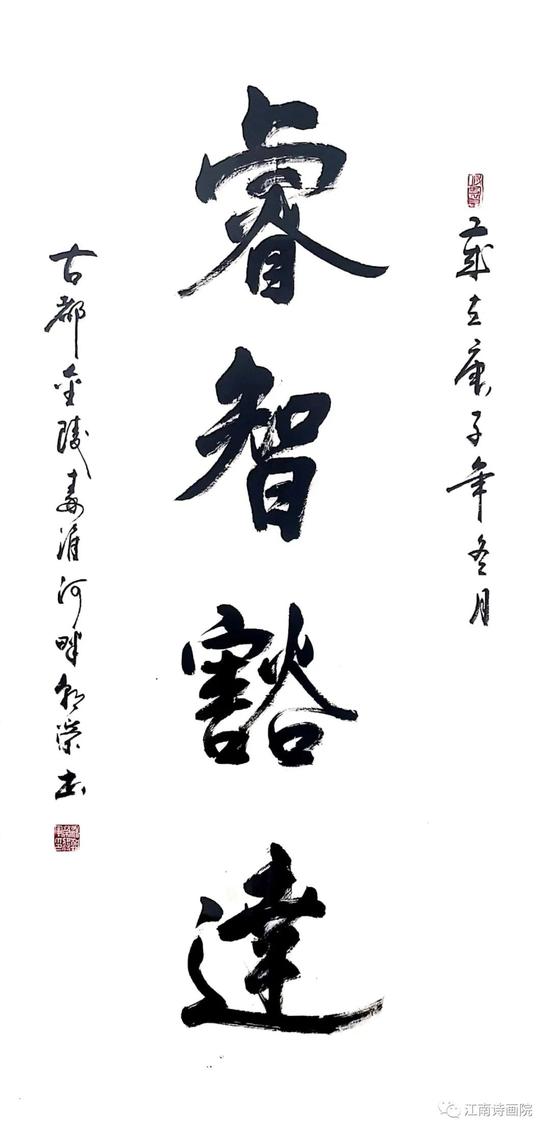 歲在庚子年冬月
睿智豁達
古都金陵秦淮河畔 榮書
江南诗画院